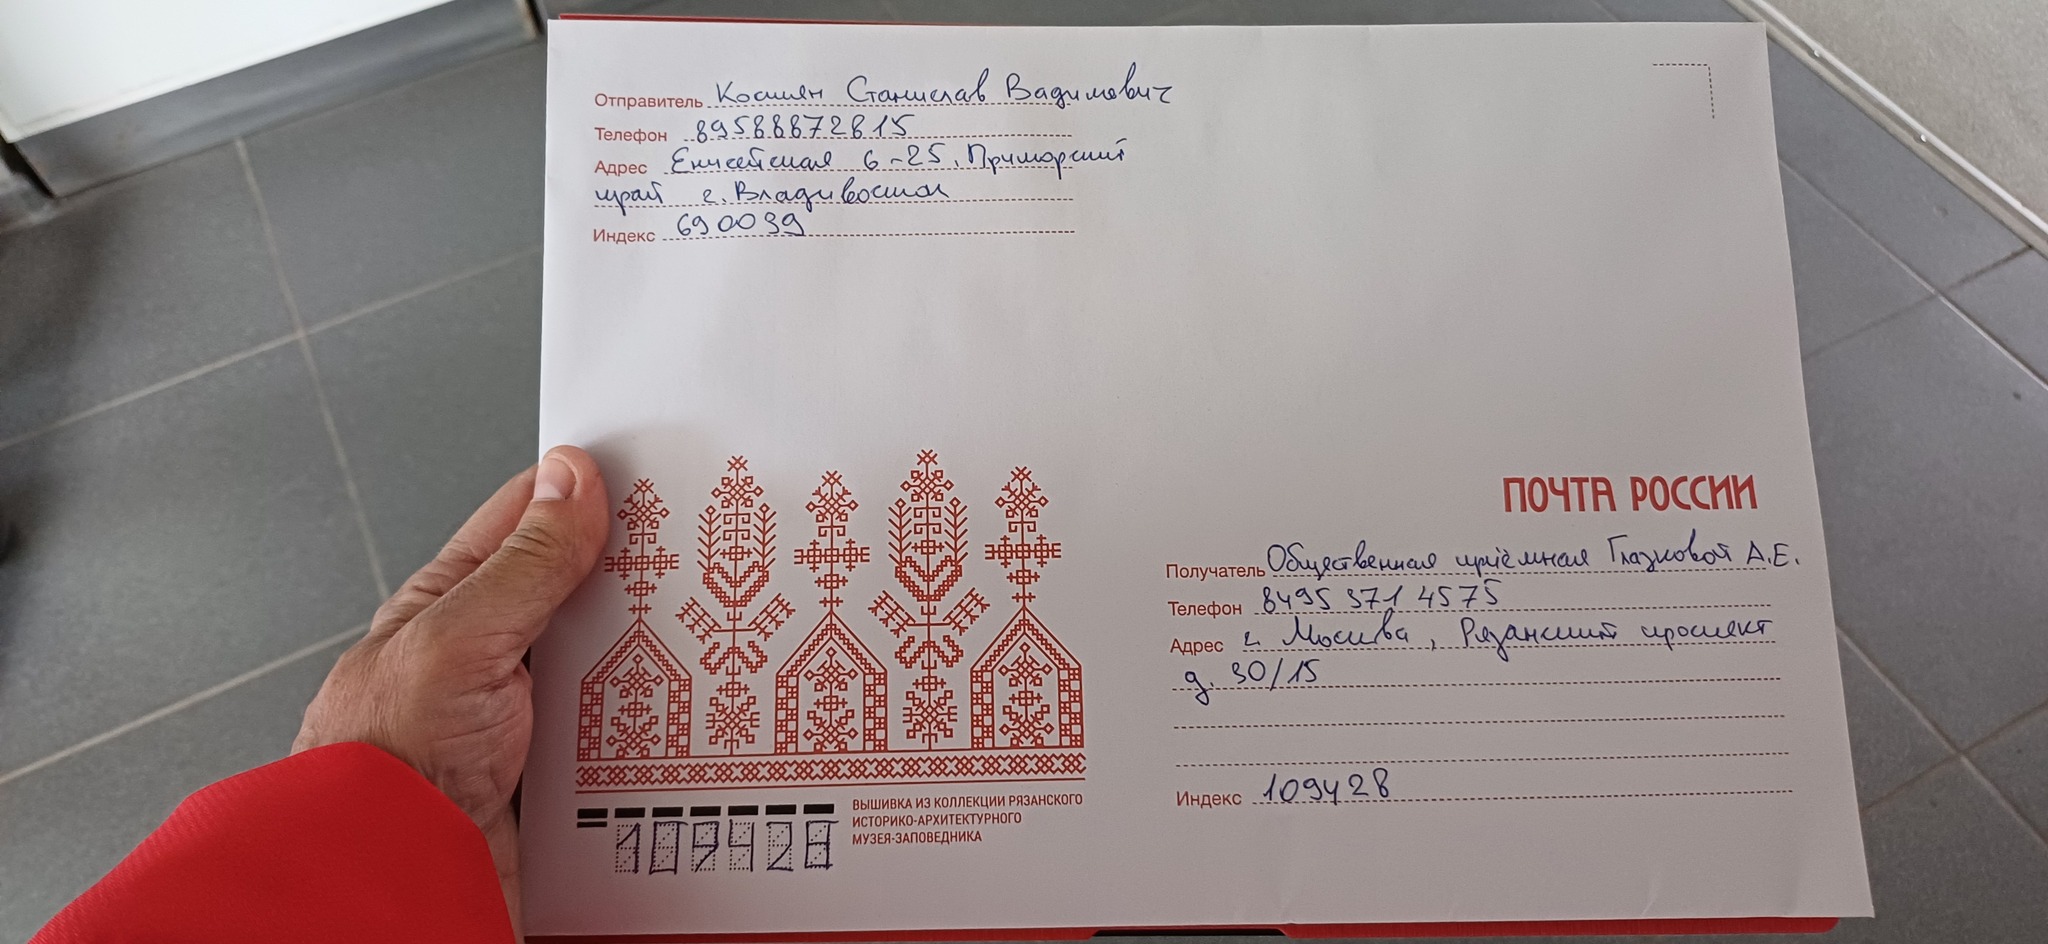 Отправитель Косиян Станислав Вадимович
Телефон 89588872815
Адрес Енисейская 6-25, Приморский
край г. Владивосток
Индекс 690039
ПОЧТА РОССИИ
Получатель Общественная приёмная Глазковой А.Е.
Телефон 8495 371 4575
Адрес г. Москва, Рязанский проспект
д. 30/15
Индекс 109428
ВЫШИВКА ИЗ КОЛЛЕКЦИИ РЯЗАНСКОГО
ИСТОРИКО-АРХИТЕКТУРНОГО
МУЗЕЯ-ЗАПОВЕДНИКА
109428